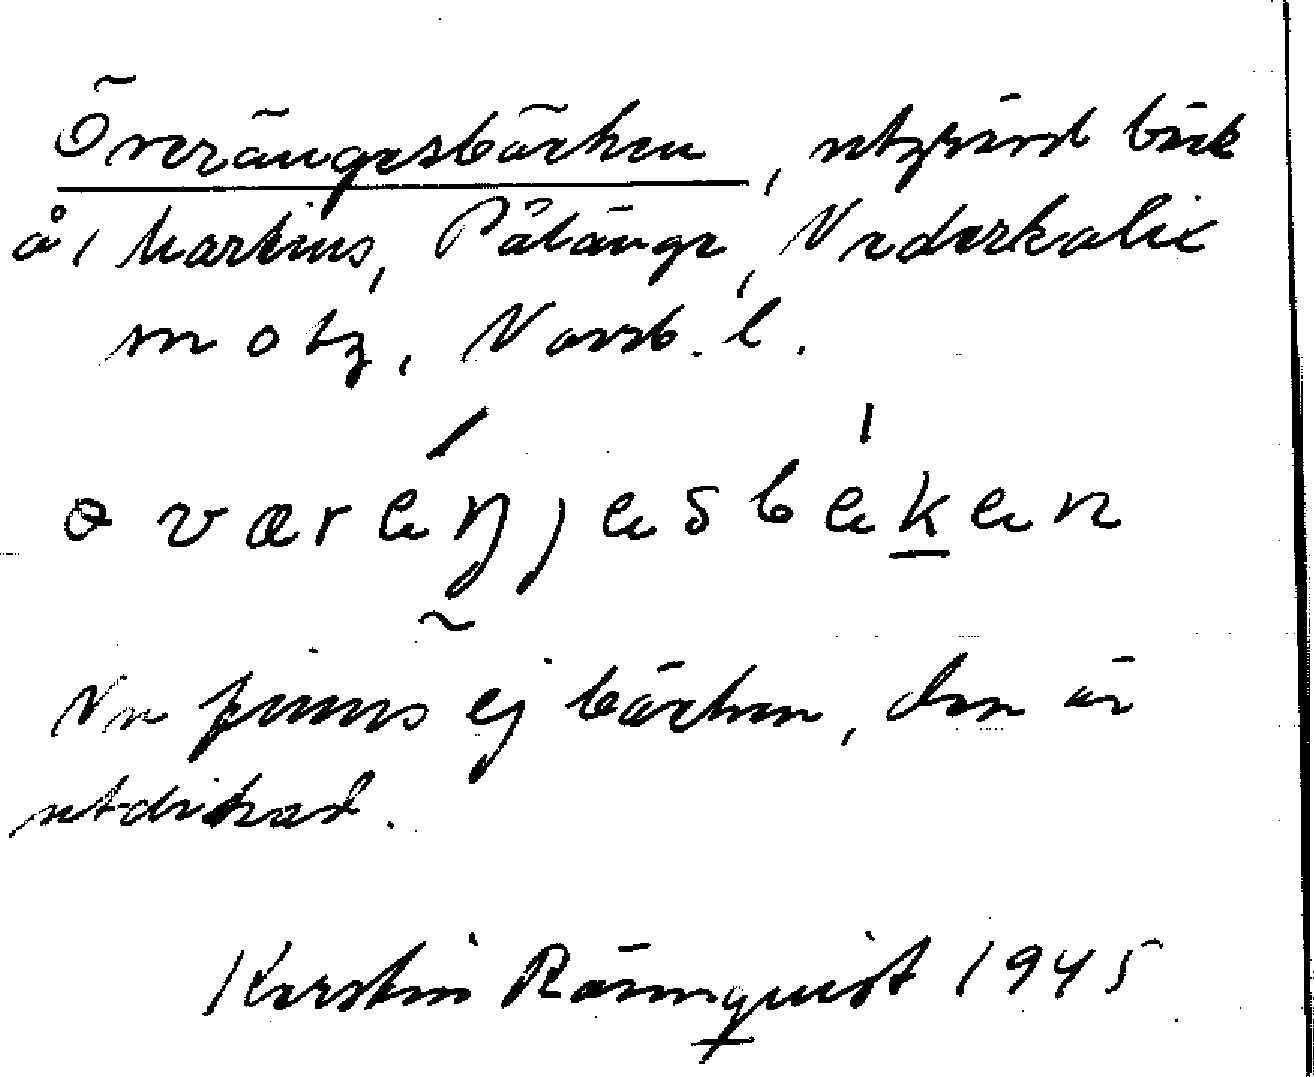 Överängesbäcken, utgrävd bäck
å 1 Martins, Pålänge, Nederkalix
sn o tg, Norrb. l.
øværeŋjesbekæn
Nu finns ej bäcken, den är
utdikad.
Kerstin Rännquist 1945